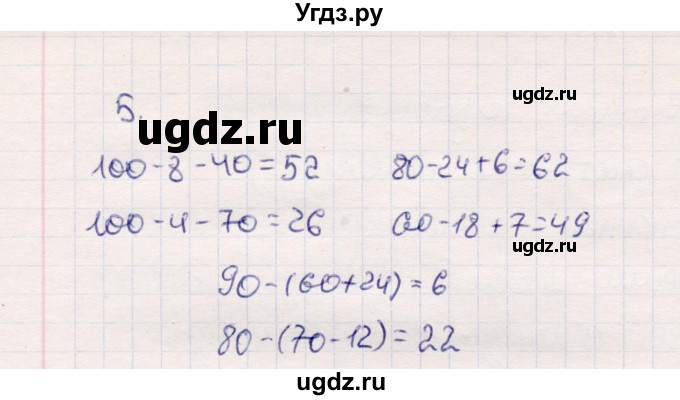 Угдз.ру
ugdz.ru
5.
ugdz.ru
100-8-40=52 80-24+6=62
100-4-70=26 60-18+7=49
ugdz.ru
90-(60+24)=6
80-(70-12)=22
ugdz.ru